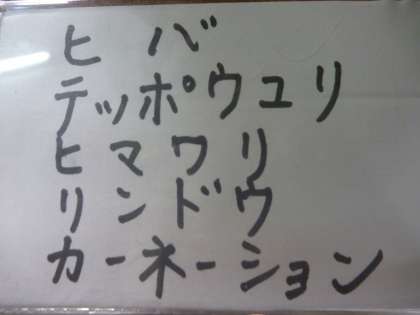 ヒバ
テッポウユリ
ヒマワリ
リンドウ
カーネーション